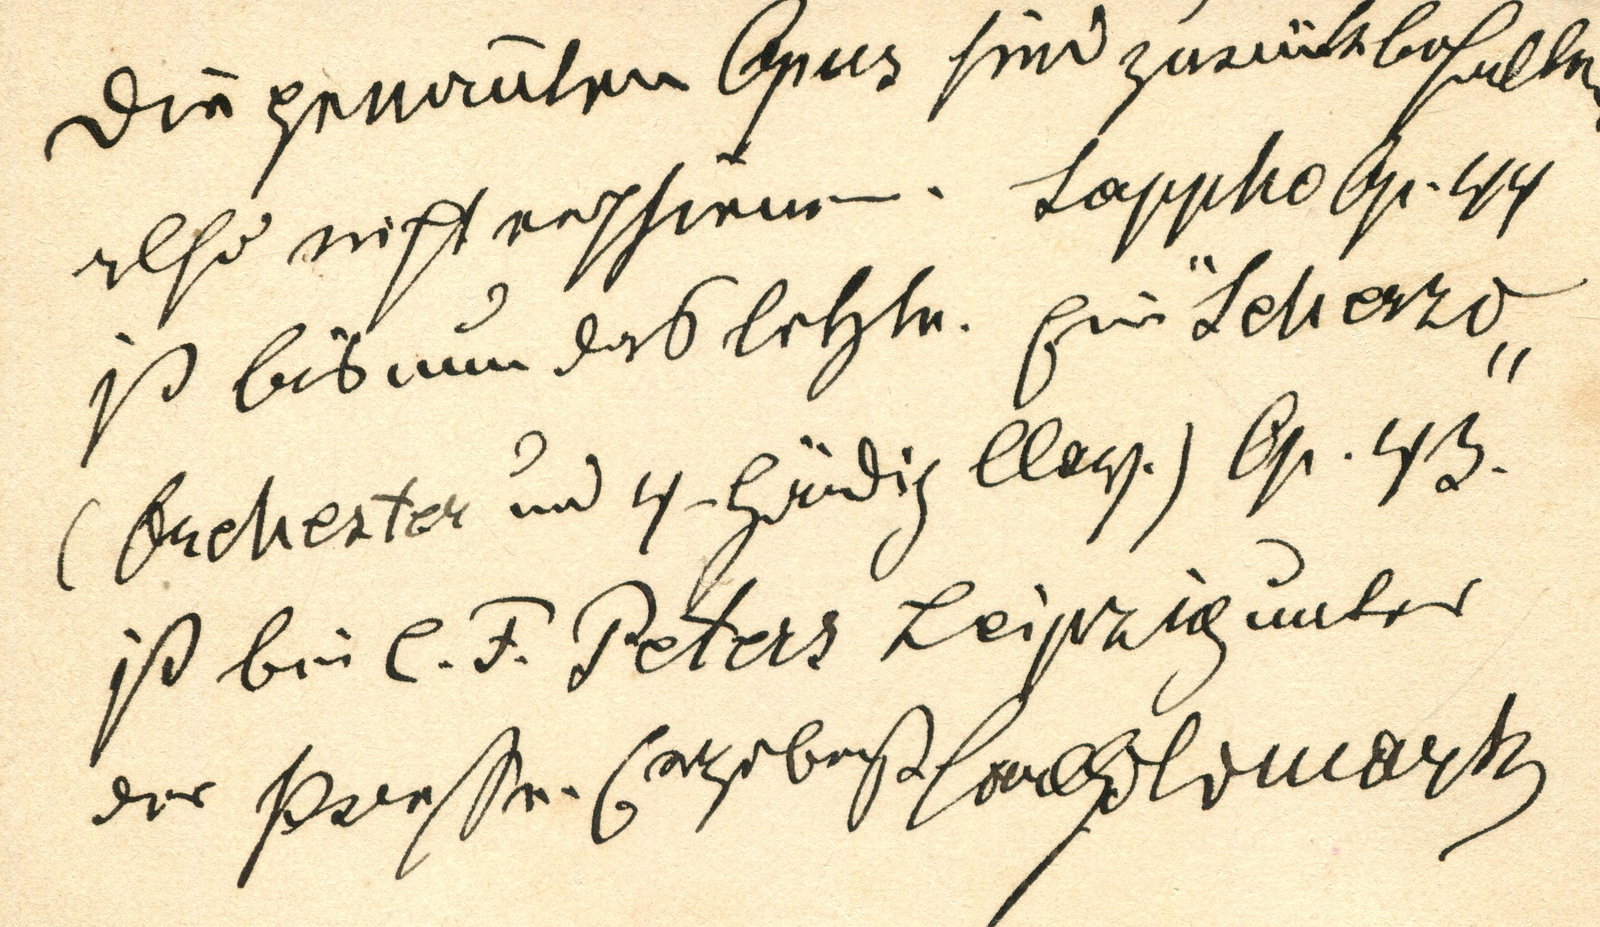 Die genannten Opus sind zurückbehalten
also nicht erschienen. Sappho Op. 44
ist bis nun das letzte. Ein "Scherzo„
(Orchester und 4-händig Clav.) Op. 43.
ist bei C. F. Peters Leipzig unter
der Presse. Ergebenst Carl Goldmark